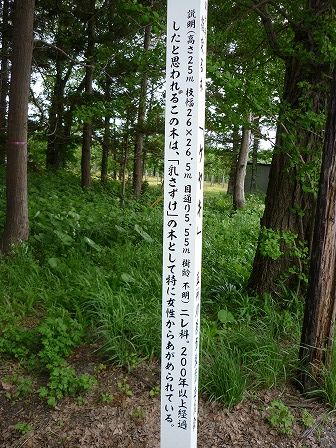 説明(高さ25m 枝幅26×26.5m 目通り5.55m 樹齢 不明)ニレ科、200年以上経過
したと思われるこの木は、「乳さずけ」の木として特に女性からあがめられている。